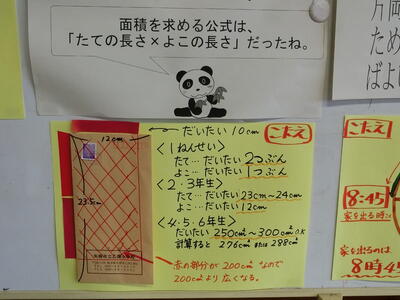 面積を求める公式は、
「たての長さ×よこの長さ」だったね。
片岡
ため
ばよい
だいたい10cm
こたえ
12cm
23.5cm
<1ねんせい>
たて…だいたい2つぶん
よこ…だいたい1つぶん
<2・3年生>
たて…だいたい23cm〜24cm
よこ…だいたい12cm
<4・5・6年生>
だいたい250cm²〜300cm² O.K
計算すると 276cm² または 288cm²
赤の部分が200cm²なので
200cm²より広くなる。
こたえ
8:45
家を出る時こ
家を出るのは
8時45